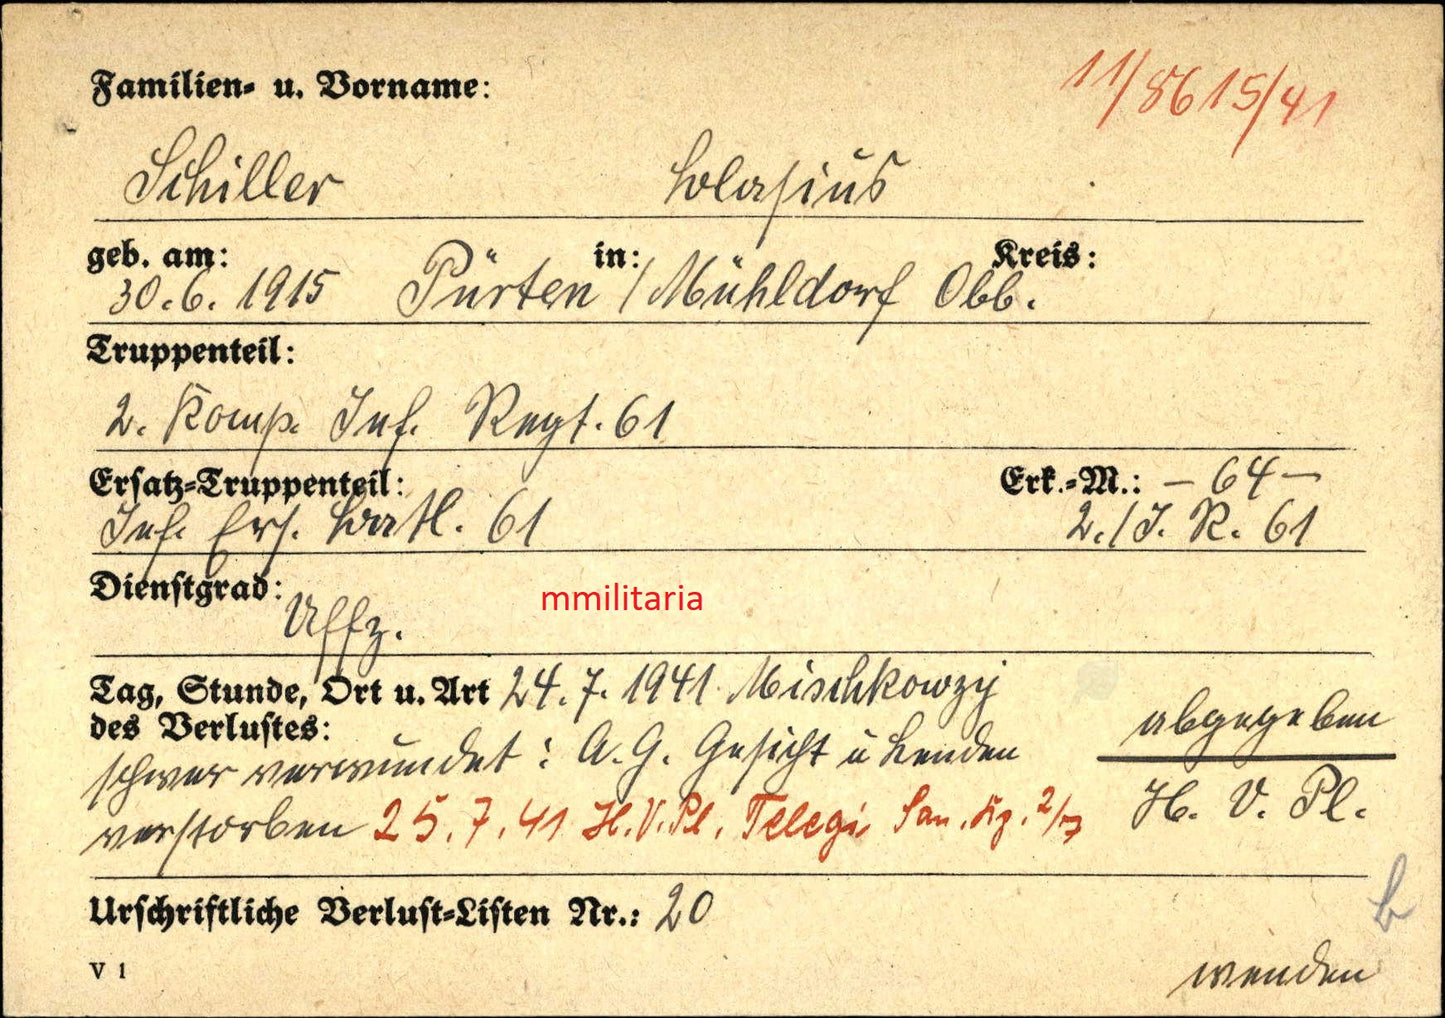 11/8615/41
Familien- u. Vorname:
Schiller Blasius
geb. am: in: Kreis:
30.6.1915 Pürten / Mühldorf Obb.
Truppenteil:
2. Komp. Inf. Regt. 61
Ersatz-Truppenteil: Erk.-M.: - 64 -
Inf. Ers. Batl. 61 2./I. R. 61
Dienstgrad:
Uffz.
mmilitaria
Tag, Stunde, Ort u. Art 24.7.1941 Mischkowzy
des Verlustes:
abgegeben
schwer verwundet: A.G. Gesicht u Lenden
verstorben 25.7.41 H.V.Pl. Telegi San. Kp. 2/7
H. V. Pl.
Urschriftliche Verlust-Listen Nr.: 20
b
V 1
wenden